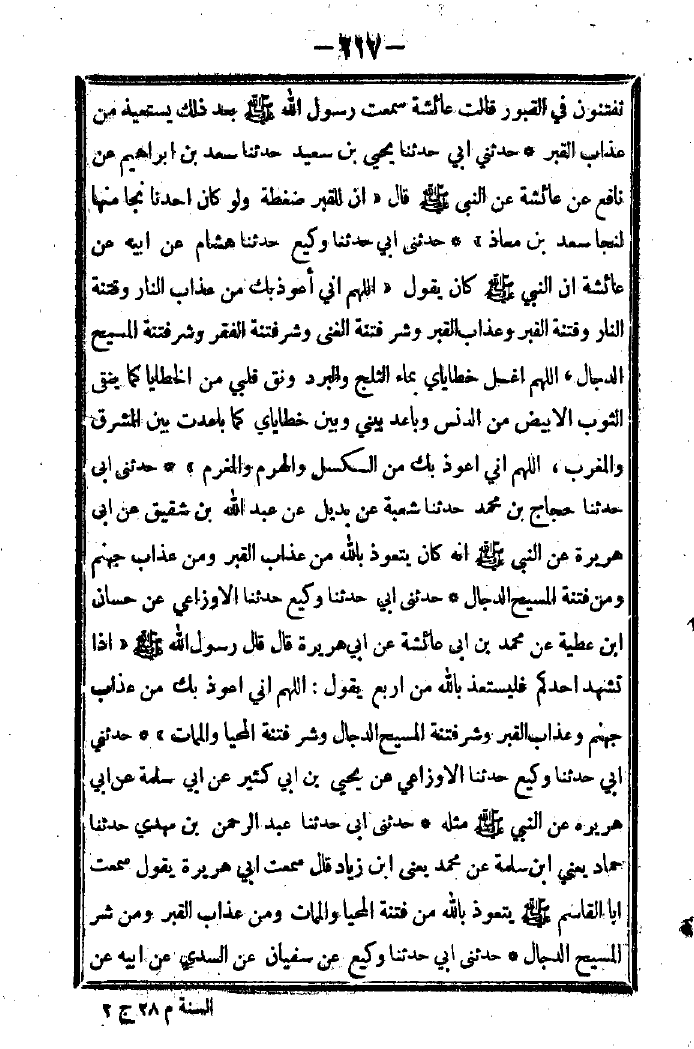 — ٢١٧ —
تفتنون في القبور قالت عائشة سمعت رسول الله ﷺ بعد ذلك يستعيذ من
عذاب القبر * حدثني ابي حدثنا يحيى بن سعيد حدثنا سعد بن ابراهيم عن
نافع عن عائشة عن النبي ﷺ قال « ان للقبر ضغطة ولو كان احدنا نجا منها
لنجا سعد بن معاذ » * حدثني ابي حدثنا وكيع حدثنا هشام عن ابيه عن
عائشة ان النبي ﷺ كان يقول « اللهم اني أعوذ بك من عذاب النار وفتنة
النار وفتنة القبر وعذاب القبر وشر فتنة الغنى وشر فتنة الفقر وشر فتنة المسيح
الدجال ، اللهم اغسل خطاياي بماء الثلج والبرد ونق قلبي من الخطايا كما ينقى
الثوب الابيض من الدنس وباعد بيني وبين خطاياي كما باعدت بين المشرق
والمغرب ، اللهم اني اعوذ بك من الكسل والهرم والمغرم » * حدثنى ابى
حدثنا حجاج بن محمد حدثنا شعبة عن بديل عن عبد الله بن شقيق عن ابى
هريرة عن النبي ﷺ انه كان يتعوذ بالله من عذاب القبر ومن عذاب جهنم
ومن فتنة المسيح الدجال * حدثنى ابي حدثنا وكيع حدثنا الاوزاعي عن حسان
ابن عطية عن محمد بن ابى عائشة عن ابي هريرة قال قال رسول الله ﷺ « اذا
تشهد احدكم فليستعذ بالله من اربع يقول : اللهم اني اعوذ بك من عذاب
جهنم وعذاب القبر وشر فتنة المسيح الدجال وشر فتنة المحيا والممات » * حدثني
ابي حدثنا وكيع حدثنا الاوزاعي عن يحيى بن ابي كثير عن ابي سلمة عن ابي
هريره عن النبي ﷺ مثله * حدثنى ابى حدثنا عبد الرحمن بن مهدي حدثنا
حماد يعني ابن سلمة عن محمد يعنى ابن زياد قال سمعت ابي هريرة يقول سمعت
ابا القاسم ﷺ يتعوذ بالله من فتنة المحيا والممات ومن عذاب القبر ومن شر
المسيح الدجال * حدثنى ابي حدثنا وكيع عن سفيان عن السدي عن ابيه عن
السنة م ٢٨ ج ٢